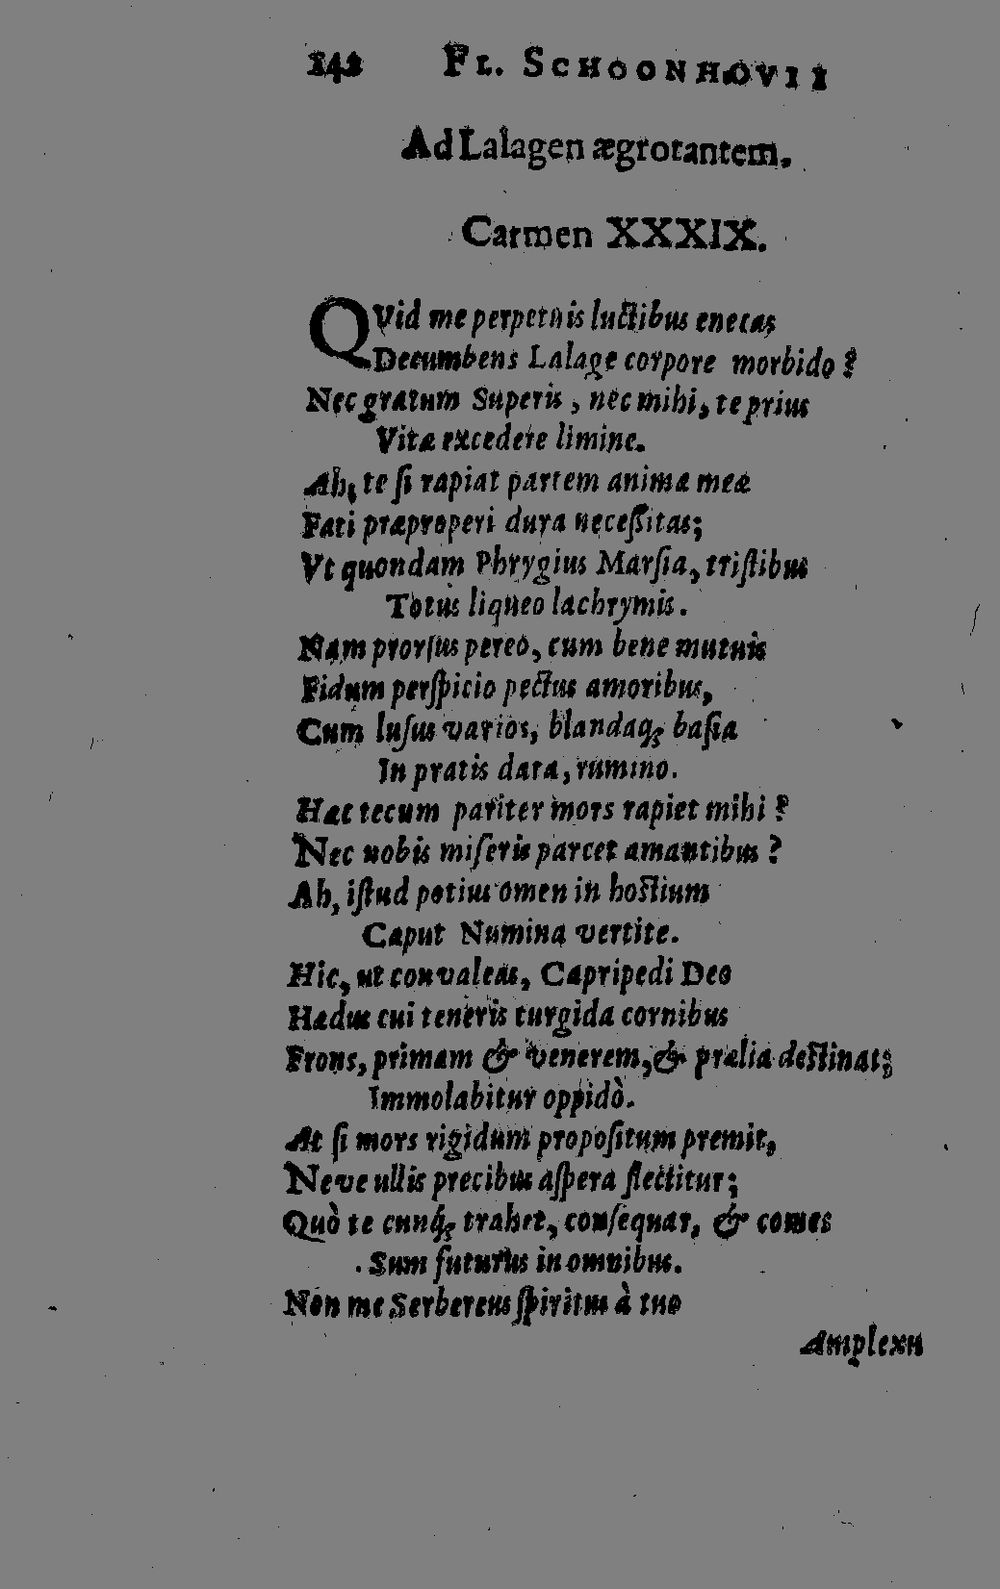 242 FL. SCHOONHOVII
Ad Lalagen ægrotantem.
Carmen XXXIX.
QVid me perpetuis luctibus enecas
Decumbens Lalage corpore morbido?
Nec gratum Superis, nec mihi, te prius
Vitæ excedere limine.
Ah, te si rapiat partem animæ meæ
Fati præproperi dura necessitas;
Vt quondam Phrygius Marsia, tristibus
Totus liqueo lachrymis.
Nam prorsus pereo, cum bene mutuis
Fidum perspicio pectus amoribus,
Cum lusus varios, blandaq; basia
In pratis data, rumino.
Hæc tecum pariter mors rapiet mihi?
Nec nobis miseris parcet amantibus?
Ah, istud potius omen in hostium
Caput Numina vertite.
Hic, ut convaleas, Capripedi Deo
Hædus cui teneris turgida cornibus
Frons, primam & venerem, & prælia destinat;
Immolabitur oppidò.
At si mors rigidum propositum premit,
Neve ullis precibus aspera flectitur;
Quò te cunq; trahet, consequar, & comes
Sum futurus in omnibus.
Non me Serbereus spiritus à tuo
Amplexu